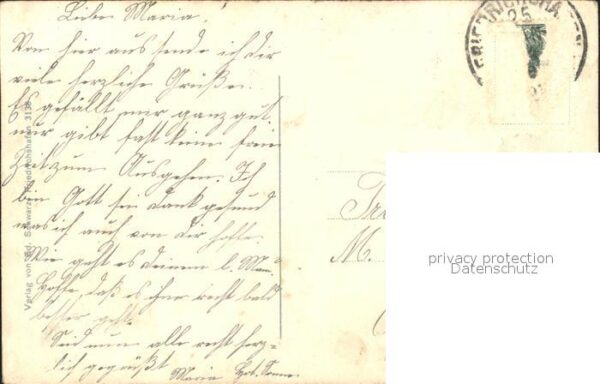 Liebe Maria.
Von hier aus sende ich dir
viele herzliche Grüße.
Es gefällt mir ganz gut.
nur gibt fast keine freie
Zeit zum Ausgehen. Ich
bin Gott sei Dank gesund
was ich auch von dir hoffe.
Wie geht es deinem l. Mann
Hoffe, daß es ihm recht bald
besser geht.
Seid nun alle recht herz-
lich gegrüßt
Maria
Verlag von Schwarz, Friedrichshafen
FRIEDRICHSHA
25
M.
privacy protection
Datenschutz